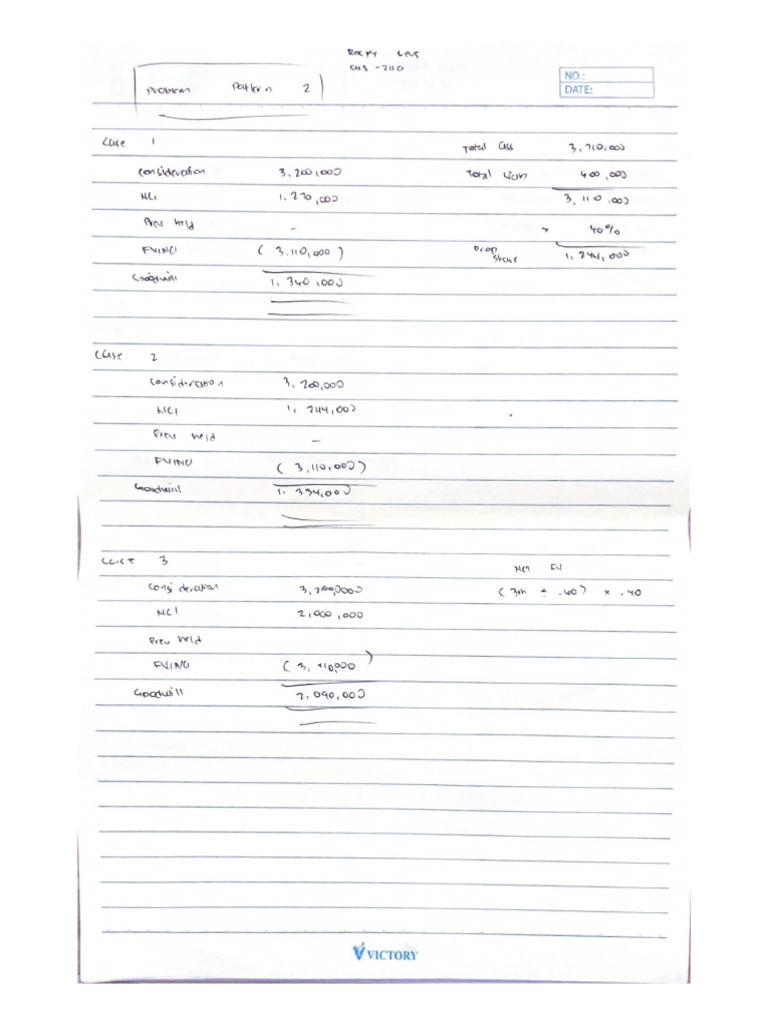 CMS - 2110
NO.:
DATE:
Problem Pattern 2
Case 1
Total Ass 3,710,000
Consideration 3,200,000
NCI 1,270,000
400,000
3,110,000
Prev held -
x 40%
FVINO (3,110,000)
Prop Share 1,244,000
Goodwill 1,340,000
Case 2
Consideration 3,200,000
NCI 1,244,000
Prev held -
FVINO (3,110,000)
Goodwill 1,334,000
Case 3
NCI FV
Consideration 3,200,000
(3m ÷ .60) x .40
NCI 2,000,000
Prev held
FVINO
Goodwill 2,090,000
VICTORY